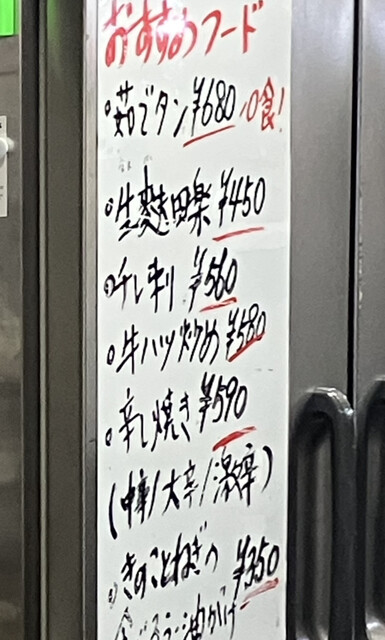 おすすめフード
茹でタン ¥680 10食!
生麩田楽 ¥450
チレ刺 ¥560
牛ハツ炒め ¥580
辛し焼き ¥590
(中辛/大辛/激辛)
きのことねぎの ¥350